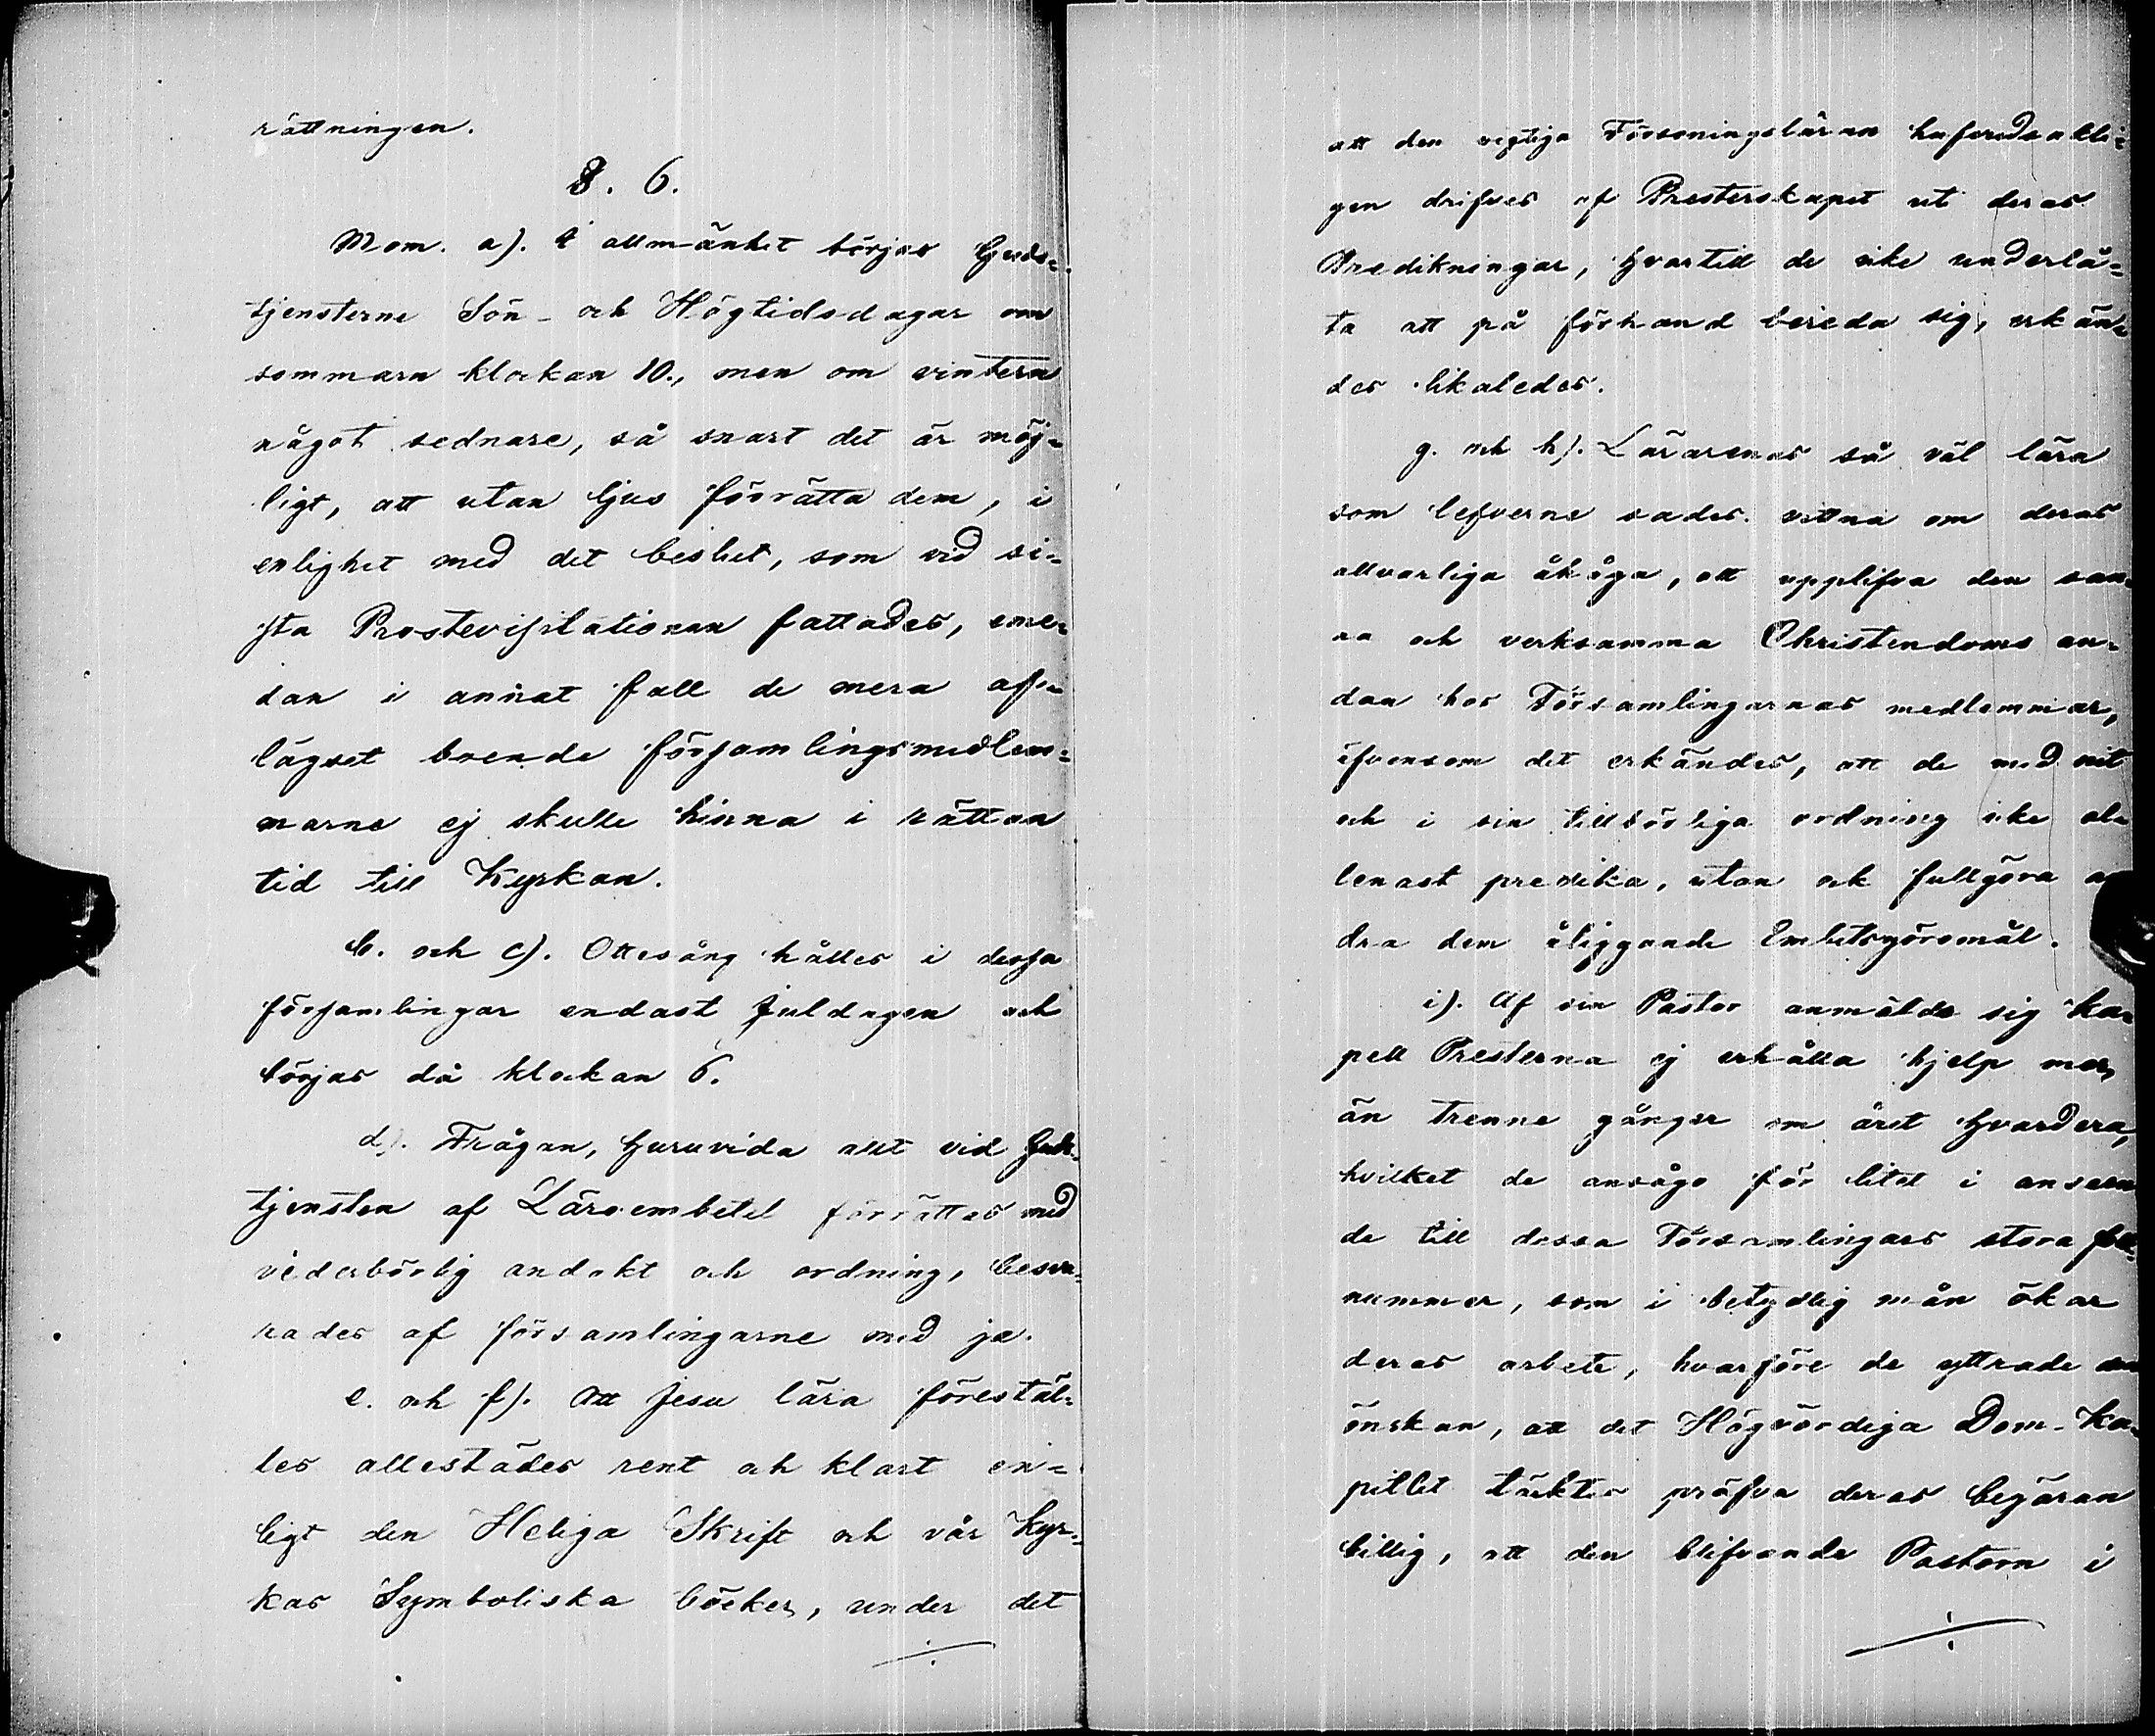 rättningen.
§. 6.
Mom. a). I allmänhet börjas Guds=
tjensterne Sön- och Högtidsdagar om
sommarn klockan 10., men om vintern
något sednare, så snart det är möj=
ligt, att utan ljus förrätta dem, i
enlighet med det beslut, som vid si=
sta Prostevisitationen fattades, eme=
dan i annat fall de mera af=
lägset boende församlingsmedlem=
marne ej skulle hinna i rättan
tid till Kyrkan.
b. och c). Ottesång hålles i dessa
församlingar endast Juldagen och
börjas då klockan 6.
d). Frågan, huruvida allt vid Guds=
tjensten af Läroembetet förrättas med
vederbörlig andakt och ordning, besva=
rades af församlingarne med ja.
e. och f). Att Jesu lära förestäl=
les allestädes rent och klart en=
ligt den Heliga Skrift och vår Kyr=
kas Symboliska böcker, under det
÷
att den vigtiga Försoningsläran hufvudsakli=
gen drifves af Presterskapet uti deras
Predikningar, hvartill de icke underlå=
ta att på förhand bereda sig, erkän=
des likaledes.
g. och h). Lärarenas så väl lära
som lefverne sades vittna om deras
allvarliga åhåga, att upplifva den san=
na och verksamma Christendoms an=
dan hos Församlingarnas medlemmar,
äfvensom det erkändes, att de med nit
och i sin tillbörliga ordning icke al=
lenast predika, utan och fullgöra an
dra dem åliggande Embetsgöromål.
i). Af sin Pastor anmälde sig Ka=
pell Presterna ej erhålla hjelp mer,
än trenne gånger om året hvardera,
hvilket de ansågo för litet i anseen
de till dessa Församlingars stora folk=
nummer, som i betydlig mån ökar
deras arbete, hvarföre de yttrade den
önskan, att det Högvördiga Dom-Ka=
pitlet täcktes pröfva deras begäran
billig, att den blifvande Pastorn i
÷